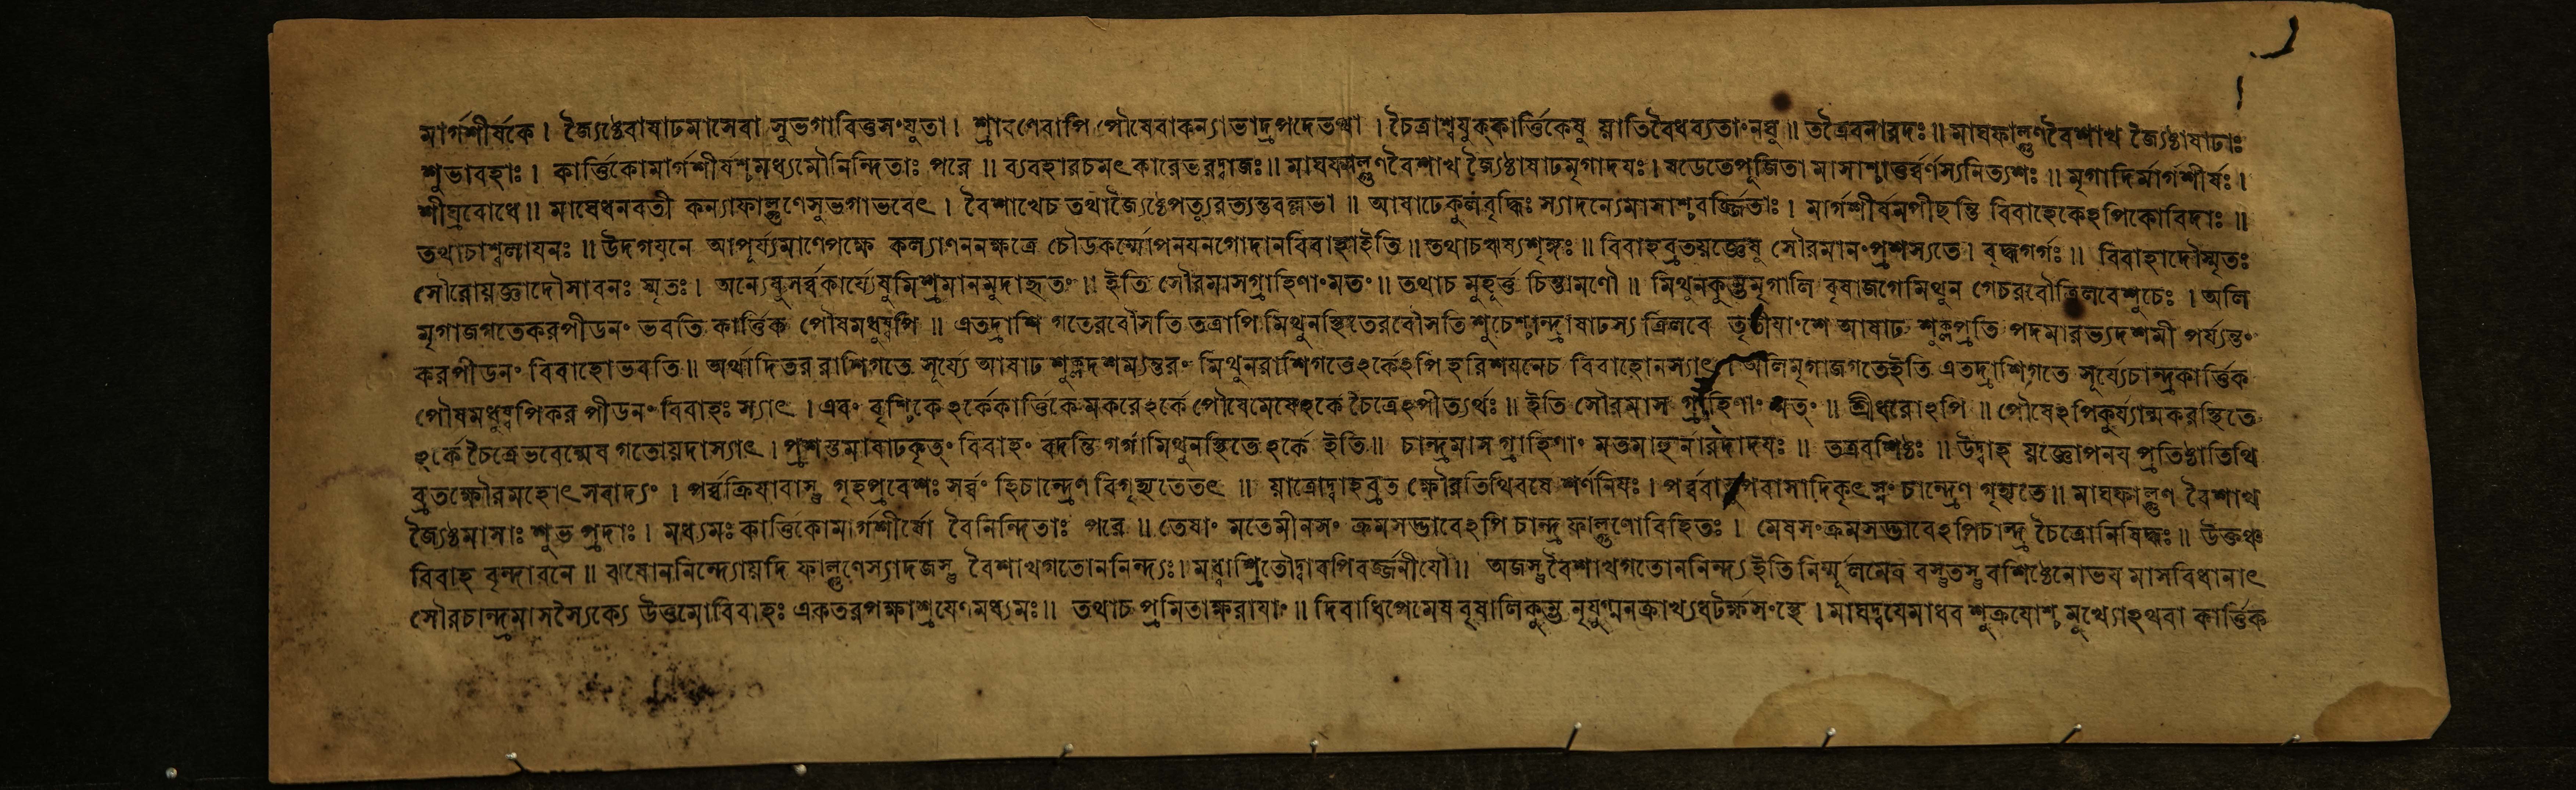 মার্গশীর্ষকে। জ্যৈষ্ঠেবাষাঢমাসেবা সুভগাবিত্তসংযুতা। শ্রাবণেবাপি পৌষেবাকন্যাভাদ্রপদেতথা। চৈত্রাশ্বযুক্কার্ত্তিকেষু য়াতিবৈধব্যতাংলঘু॥ তত্রৈবনারদঃ॥ মাঘফাল্গুণবৈশাখ জ্যৈষ্ঠাষাঢাঃ
শুভাবহাঃ। কার্ত্তিকোমার্গশীর্ষশ্চমধ্যমৌনিন্দিতাঃ পরে॥ ব্যবহারচমৎকারেভরদ্বাজঃ॥ মাঘফাল্গুণবৈশাখ জ্যৈষ্ঠাষাঢমৃগাদযঃ। ষডেতেপূজিতা মাসাশ্চাতুর্ব্বর্ণস্যনিত্যশঃ॥ মৃগাদির্মার্গশীর্ষঃ।
শীঘ্রবোধে॥ মাঘেধনবতী কন্যাফাল্গুণেসুভগাভবেৎ। বৈশাখেচ তথাজ্যৈষ্ঠেপত্যুরত্যন্তবল্লভা॥ আষাঢেকুলবৃদ্ধিঃ স্যাদন্যেমাসাশ্চবর্জ্জিতাঃ। মার্গশীর্ষমপীছন্তি বিবাহেকেঽপিকোবিদাঃ॥
তথাচাশ্বলাযনঃ॥ উদগযনে আপূর্য্যমাণেপক্ষে কল্যাণননক্ষত্রে চৌডকর্ম্মোপনযনগোদানবিবাহাইতি॥ তথাচঋষ্যশৃঙ্গঃ॥ বিবাহব্রতয়জ্ঞেষু সৌরমানংপ্রশস্যতে। বৃদ্ধগর্গঃ॥ বিবাহাদৌস্মৃতঃ
সৌরোয়জ্ঞাদৌসাবনঃ স্মৃতঃ। অন্যেষুসর্ব্বকার্য্যেষুমিশ্রমানমুদাহৃতং॥ ইতি সৌরমাসগ্রাহিণাংমতং॥ তথাচ মুহূর্ত্ত চিন্তামণৌ॥ মিথুনকুম্ভমৃগালি বৃষাজগেমিথুন গেচরবৌত্রিলবেশুচেঃ। অলি
মৃগাজগতেকরপীডনং ভবতি কার্ত্তিক পৌষমধুষ্বপি॥ এতদ্রাশি গতেরবৌসতি তত্রাপি মিথুনস্থিতেরবৌসতি শুচেশ্চান্দ্রাষাঢস্য ত্রিলবে তৃতীযাংশে আষাঢ শুক্লপ্রতি পদমারভ্যদশমী পর্য্যন্তং
করপীডনং বিবাহোভবতি॥ অর্থাদিতর রাশিগতে সূর্য্যে আষাঢ শুক্লদশম্যন্তরং মিথুনরাশিগতেঽর্কেঽপি হরিশযনেচ বিবাহোনস্যাৎ। অলিমৃগাজগতেইতি এতদ্রাশিগতে সূর্য্যেচান্দ্রকার্ত্তিক
পৌষমধুষ্বপিকর পীডনং বিবাহঃ স্যাৎ। এবং বৃশ্চিকেঽর্কেকার্ত্তিকেমকরেঽর্কে পৌষেমেষেঽর্কে চৈত্রেঽপীত্যর্থঃ॥ ইতি সৌরমাস গ্রাহিণাং মতং॥ শ্রীধরোঽপি॥ পৌষেঽপিকুর্য্যান্মকরস্থিতে
ঽর্কে চৈত্রেভবেন্মেষ গতোয়দাস্যাৎ। প্রশস্তমাষাঢকৃতং বিবাহং বদন্তি গর্গামিথুনস্থিতেঽর্কে ইতি॥ চান্দ্রমাস গ্রাহিণাং মতমাহুর্নারদাদযঃ॥ তত্রবশিষ্ঠঃ॥ উদ্বাহ য়জ্ঞোপনয প্রতিষ্ঠাতিথি
ব্রতক্ষৌরমহোৎসবাদ্যং। পর্ব্বক্রিযাবাস্তু গৃহপ্রবেশঃ সর্ব্বং হিচান্দ্রেণ বিগৃহ্যতেতৎ॥ য়াত্রোদ্বাহব্রত ক্ষৌরতিথিবর্ষে শর্ণনিযঃ। পর্ব্ববাস্তূপবাসাদিকৃৎস্নং চান্দ্রেণ গৃহ্যতে॥ মাঘফাল্গুণ বৈশাখ
জ্যৈষ্ঠমাসাঃ শুভ প্রদাঃ। মধ্যমঃ কার্ত্তিকোমার্গশীর্ষো বৈনিন্দিতাঃ পরে॥ তেষাং মতেমীনসং ক্রমসদ্ভাবেঽপি চান্দ্র ফাল্গুণোবিহিতঃ। মেষসংক্রমসদ্ভাবেঽপিচান্দ্র চৈত্রোনিষিদ্ধঃ॥ উক্তঞ্চ
বিবাহ বৃন্দাবনে॥ ঝষোননিন্দ্যোয়দি ফাল্গুণেস্যাদজস্তু বৈশাখগতোননিন্দ্যঃ। মধ্বাশ্রিতৌদ্বাবপিবর্জ্জনীযৌ॥ অজস্তুবৈশাখগতোননিন্দ্য ইতি নির্ম্মূলমেব বস্তুতস্তু বশিষ্ঠেনোভয মাসবিধানাৎ
সৌরচান্দ্রমাসস্যৈক্যে উত্তমোবিবাহঃ একতরপক্ষাশ্রযেণমধ্যমঃ॥ তথাচ প্রমিতাক্ষরাযাং॥ দিবাধিপেমেষ বৃষালিকুম্ভ নৃযুগ্মনক্রাখ্যধটর্ক্ষসংস্থে। মাঘদ্বযেমাধব শুক্রযোশ্চ মুখ্যোঽথবা কার্ত্তিক